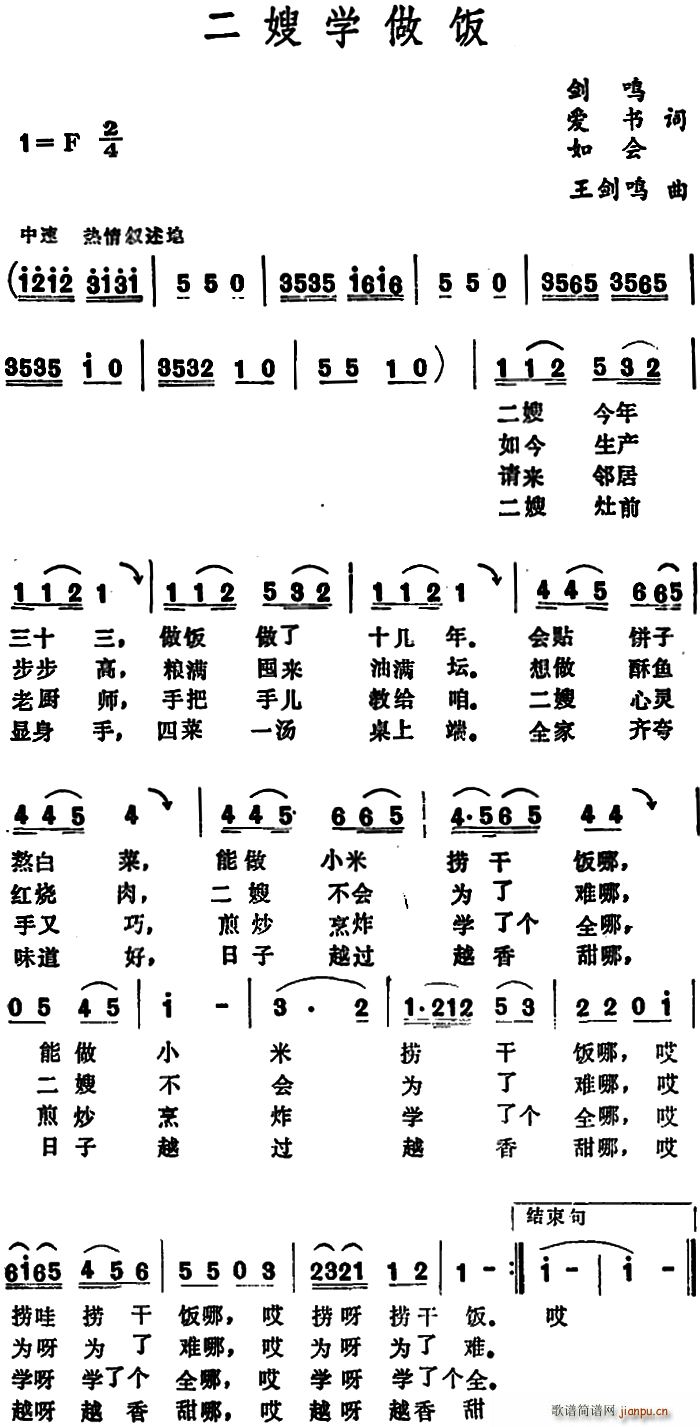 二嫂学做饭
剑鸣
爱书 词
如会
1=F 2/4
王剑鸣 曲
中速 热情叙述地
(i2i2 3i3i | 5 5 0 | 3535 i6i6 | 5 5 0 | 3565 3565 |
3535 i 0 | 3532 1 0 | 5 5 1 0 ) | 1 1 2 5 3 2 |
二嫂 今年
如今 生产
请来 邻居
二嫂 灶前
1 1 2 1 | 1 1 2 5 3 2 | 1 1 2 1 | 4 4 5 6 65
三十三, 做饭 做了 十几年。 会贴 饼子
步步高, 粮满 囤来 油满坛。 想做 酥鱼
老厨师, 手把 手儿 教给咱。 二嫂 心灵
显身手, 四菜 一汤 桌上端。 全家 齐夸
4 4 5 4 | 4 4 5 6 6 5 | 4·5 6 5 4 4 |
熬白菜, 能做 小米 捞干 饭哪,
红烧肉, 二嫂 不会 为了 难哪,
手又巧, 煎炒 烹炸 学了个 全哪,
味道好, 日子 越过 越香 甜哪,
0 5 4 5 | i - | 3 · 2 | 1·212 5 3 | 2 2 0 i |
能做 小 米 捞 干 饭哪, 哎
二嫂 不 会 为 了 难哪, 哎
煎炒 烹 炸 学 了个 全哪, 哎
日子 越 过 越 香 甜哪, 哎
结束句
6i65 4 5 6 | 5 5 0 3 | 2321 1 2 | 1 - :| i - | i - ‖
捞哇 捞 干 饭哪, 哎 捞呀 捞干 饭。 哎
为呀 为 了 难哪, 哎 为呀 为了 难。
学呀 学了个 全哪, 哎 学呀 学了个全。
越呀 越 香 甜哪, 哎 越呀 越香 甜
歌谱简谱网
jianpu.cn